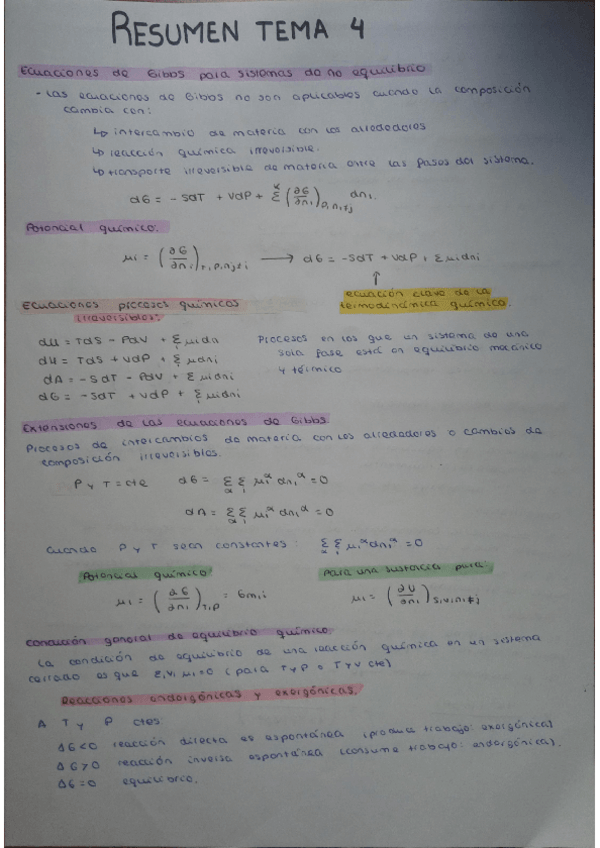 RESUMEN TEMA 4
Ecuaciones de Gibbs para sistemas de no equilibrio
- Las ecuaciones de Gibbs no son aplicables cuando la composición
cambia con:
↳ intercambio de materia con los alrededores
↳ reacción química irreversible.
↳ transporte irreversible de materia entre las fases del sistema.
dG = - SdT + VdP + Σ (∂G/∂ni)P,ni≠j dni.
Potencial químico.
μi = (∂G/∂ni)T,P,nj≠i → dG = -SdT + VdP + Σ μidni
↑
ecuación clave de la
termodinámica química.
Ecuaciones procesos químicos
irreversibles:
dU = TdS - PdV + Σi μidn
dH = TdS + VdP + Σi μidni
dA = -SdT - PdV + Σi μidni
dG = -SdT + VdP + Σi μidni
Procesos en los que un sistema de una
sola fase está en equilibrio mecánico
y térmico
Extensiones de las ecuaciones de Gibbs.
Procesos de intercambios de materia con los alrededores o cambios de
composición irreversibles.
P y T = cte dG = Σα Σi μi^α dni^α = 0
dA = Σα Σi μi^α dni^α = 0
Cuando P y T sean constantes: Σα Σi μi^α dni^α = 0
Potencial químico: Para una sustancia pura:
μi = (∂G/∂ni)T,P = Gm,i μi = (∂U/∂ni)S,V,ni≠j
Condición general de equilibrio químico.
La condición de equilibrio de una reacción química en un sistema
cerrado es que Σi νi μi = 0 (para T y P o T y V cte)
Reacciones endorgónicas y exorgónicas.
A T y P ctes:
ΔG<0 reacción directa es espontánea (produce trabajo: exorgónica)
ΔG>0 reacción inversa espontánea (consume trabajo: endorgónica).
ΔG=0 equilibrio.